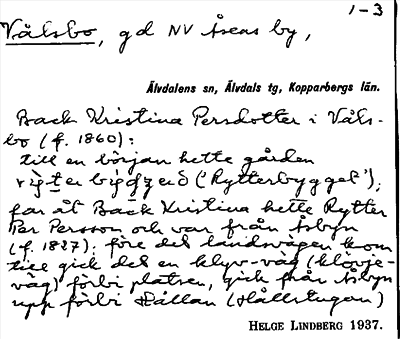 1-3
Vålsbo, gd NV Åsens by,
Älvdalens sn, Älvdals tg, Kopparbergs län.
Back Kristina Persdotter i Våls-
bo (f. 1860):
till en början hette gården
('Rytterbygget'),
far åt Back Kristina hette Rytter
Per Persson och var från Åsbyn
(f. 1827); före det landsvägen kom
till gick det en klyv-väg (klövje-
väg) förbi platsen, gick från Åsbyn
upp förbi Hållan (Hållstugan)
HELGE LINDBERG 1937.